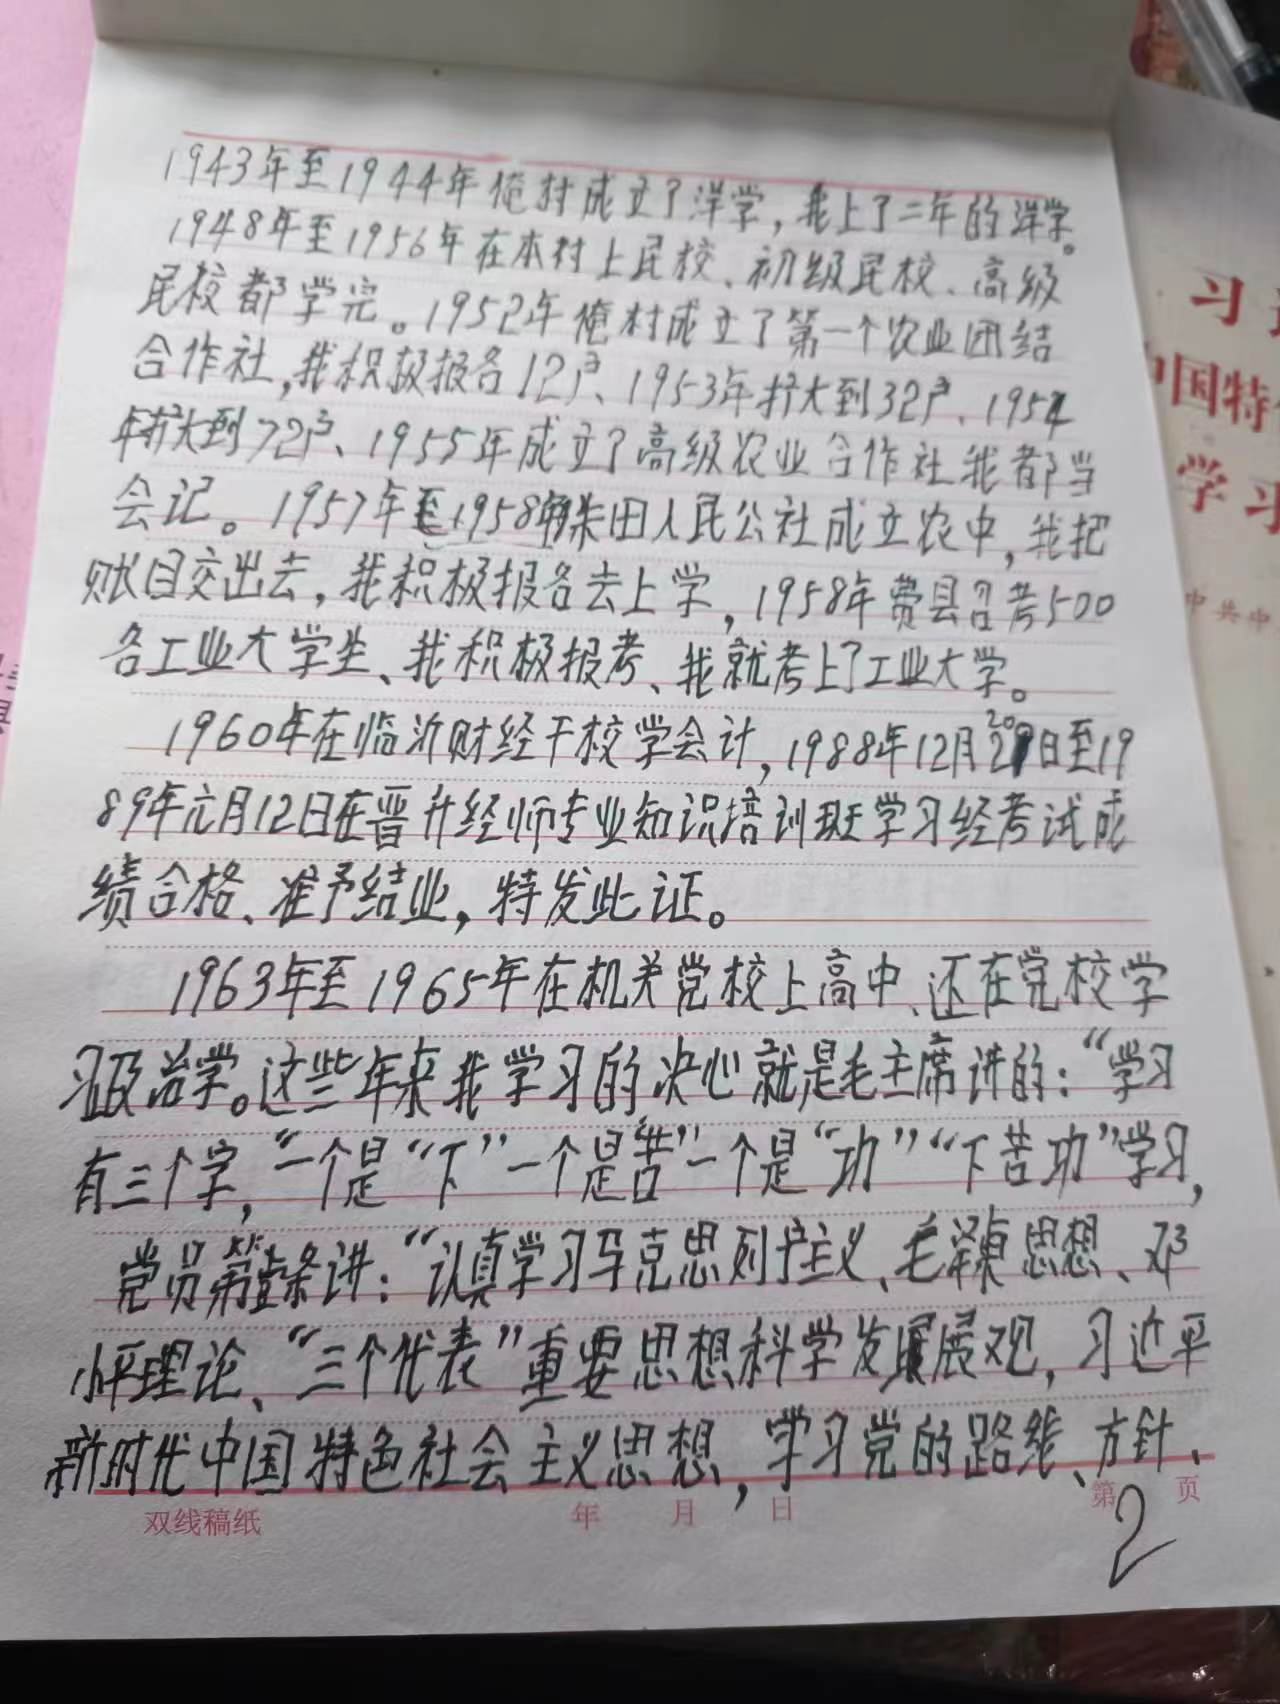 1943年至1944年俺村成立了洋学，我上了二年的洋学。
1948年至1956年在本村上民校、初级民校、高级
民校都学完。1952年俺村成立了第一个农业团结
合作社，我积极报名12户、1953年扩大到32户、1954
年扩大到72户、1955年成立了高级农业合作社我都当
会记。1957年至1958年朱田人民公社成立农中，我把
账目交出去，我积极报名去上学，1958年费县召考500
名工业大学生、我积极报考、我就考上了工业大学。
1960年在临沂财经干校学会计，1988年12月20日至19
89年元月12日在晋升经师专业知识培训班学习经考试成
绩合格、准予结业，特发此证。
1963年至1965年在机关党校上高中、还在党校学
习政治学。这些年来我学习的决心就是毛主席讲的：“学习
有三个字，“一个是“下”一个是“苦”一个是“功”“下苦功”学习，
党员第条讲：“认真学习马克思列宁主义、毛泽东思想、邓
小平理论、“三个代表”重要思想科学发展观，习近平
新时代中国特色社会主义思想，学习党的路线、方针、
双线稿纸 年 月 日 第2页
习
中国特
学习
中共中